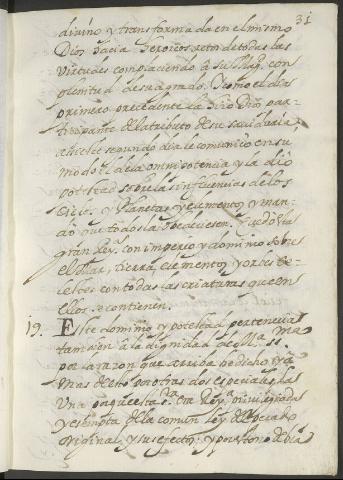 31
divino y transformada en el mismo
Dios hacia heroicos actos de todas las
virtudes complaciendo à su Mag. con
plenitud de su agrado. Y como el dia
primero precedente la hizo Dios par-
ticipante del atributo de su sauiduria
assi este segundo dia le comunico en su
modo el de la omnipotencia y la dio
potestad sobre las influencias de los
Cielos y Planetas y elementos y man-
dò que todos la obedeciesen. quedò esta
gran Reyna con imperio y dominio sobre
el Mar, tierra, elementos y orbes ce-
lestes con todas las criaturas que en
ellos se contienen.
19. Este dominio y potestad pertenecia
tambien à la dignidad de M.ª SS.ma
por la razon que arriba he dicho y à
mas de esto por otras dos especiales. la
Una porque esta S.ª era Reyna privilegiada
y esempta de la comun ley del pecado
original y sus efectos: y por esto no debia